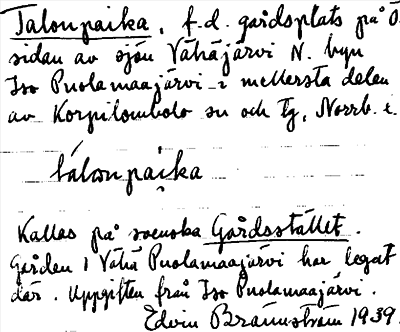 Talonpaika, f.d. gårdsplats på Ö.
sidan av sjön Vähäjärvi N. byn
Iso Puolamaajärvi i mellersta delen
av Korpilombolo sn och tg, Norrb. l.
tálonpaika
Kallas på svenska Gårdsstället.
Gården i Vähä Puolamaajärvi har legat
där. Uppgiften från Iso Puolamaajärvi.
Edvin Brännström 1939.